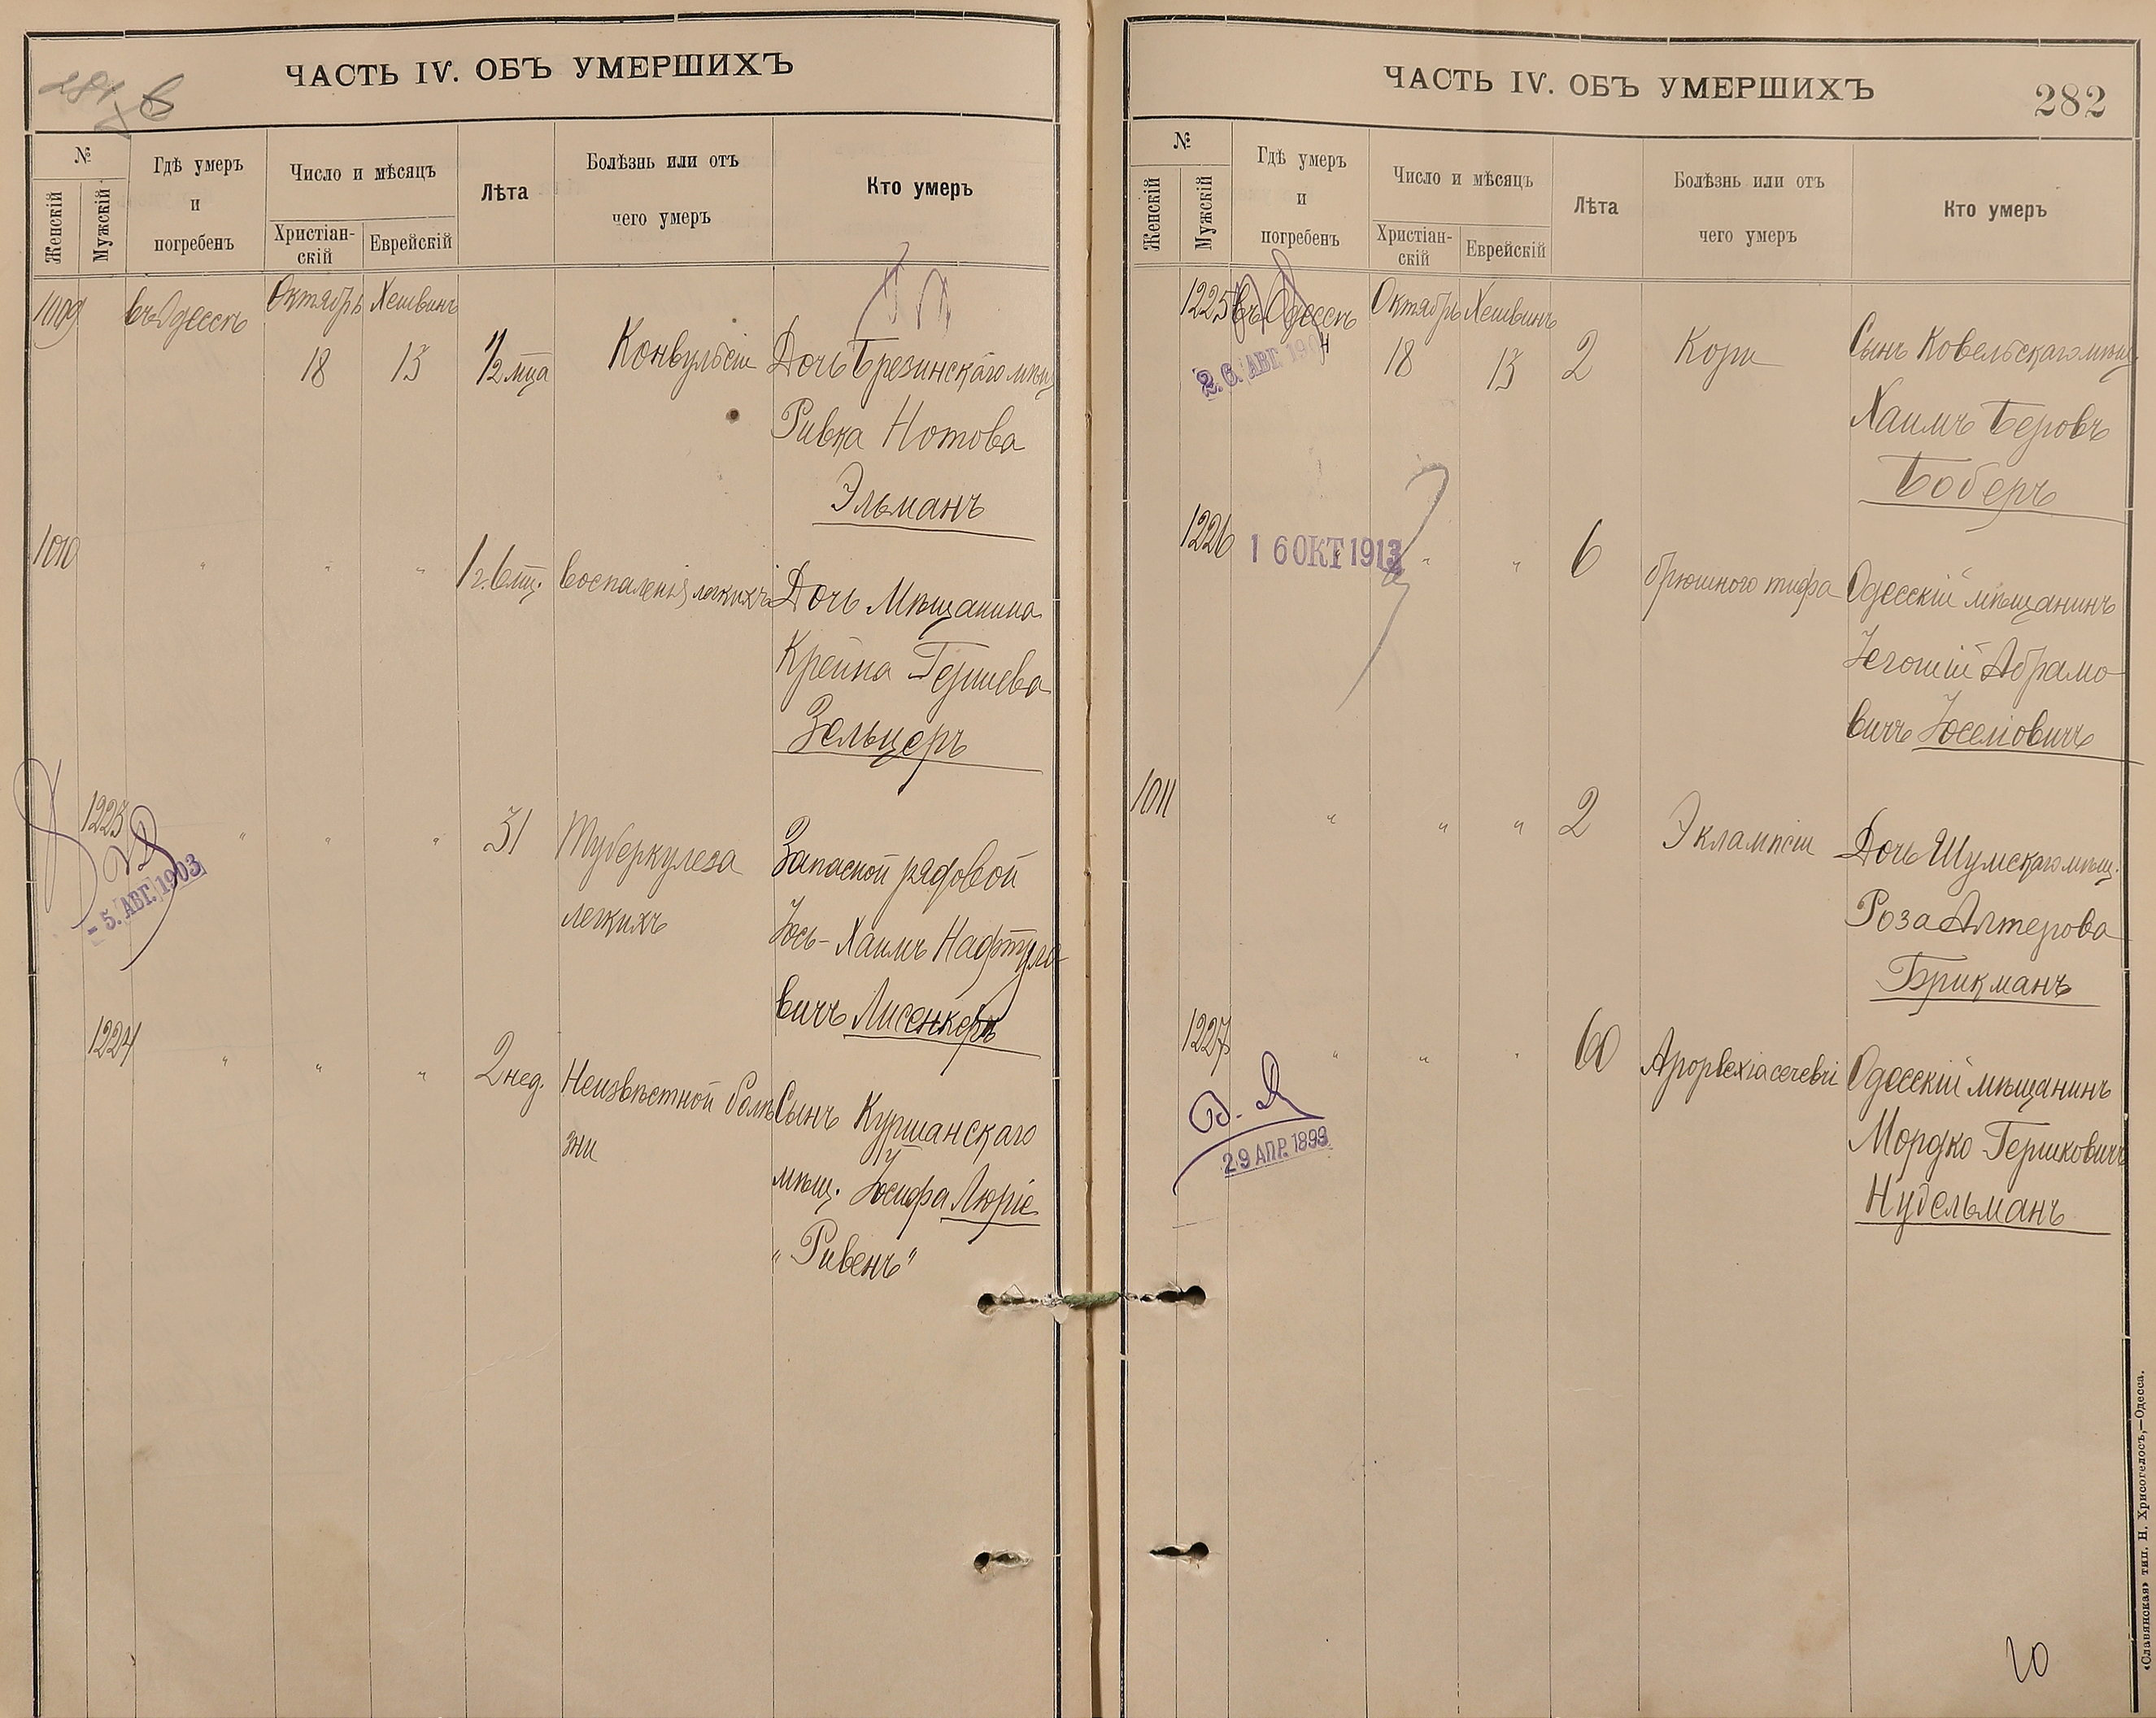 281 в
ЧАСТЬ IV. ОБЪ УМЕРШИХЪ
№
Женскій
Мужскій
Гдѣ умеръ
и
погребенъ
Число и мѣсяцъ
Христіан-
скій
Еврейскій
Лѣта
Болѣзнь или отъ
чего умеръ
Кто умеръ
1009 въ Одессѣ Октябрь Хешвинъ
18 13 1/2 мца Конвульсіи Дочь Брезинскаго мѣщ
Ривка Нотова
Эльманъ
1010 " " " 1 г. 6 мц. Воспаленія легкихъ Дочь Мѣщанина
Крейна Гершева
Зельцеръ
1223 " " " 31 Туберкулеза Запасной рядовой
легкихъ Іось-Хаимъ Нафтула
вичъ Лисенкеръ
- 5. АВГ. 1903
1224 " " " 2 нед. Неизвѣстной болѣ Сынъ Куршанскаго
зни мѣщ. Іосифа Люріе
"Ривенъ"
ЧАСТЬ IV. ОБЪ УМЕРШИХЪ
282
№
Женскій
Мужскій
Гдѣ умеръ
и
погребенъ
Число и мѣсяцъ
Христіан-
скій
Еврейскій
Лѣта
Болѣзнь или отъ
чего умеръ
Кто умеръ
1225 въ Одессѣ Октябрь Хешвинъ
18 13 2 Кори Сынъ Ковельскаго мѣщ.
Хаимъ Беровъ
Боберъ
1226 1 6 ОКТ 1913 " " 6 брюшного тифа Одесскій мѣщанинъ
Абрамо
вичъ Іоселіовичъ
1011 " " " 2 Эклампсіи Дочь Шумскаго мѣщ.
Роза Алтерова
Брикманъ
1227 " " " 60 Одесскій мѣщанинъ
Мордко Гершковичъ
Нудельманъ
29 АПР. 1899
20
«Славянская» тип. Н. Хрисогелосъ,—Одесса.